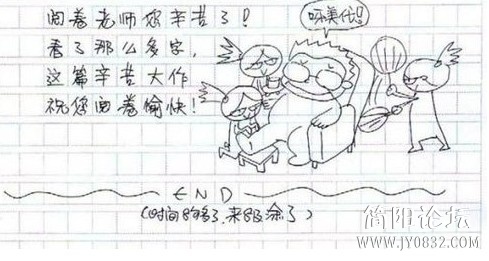 阅卷老师您辛苦了!
看了那么多字,
这篇辛苦大作
祝您阅卷愉快!
呀美代!
END
(时间够多了,来段余了)
简阳论坛
WWW.JY0832.COM